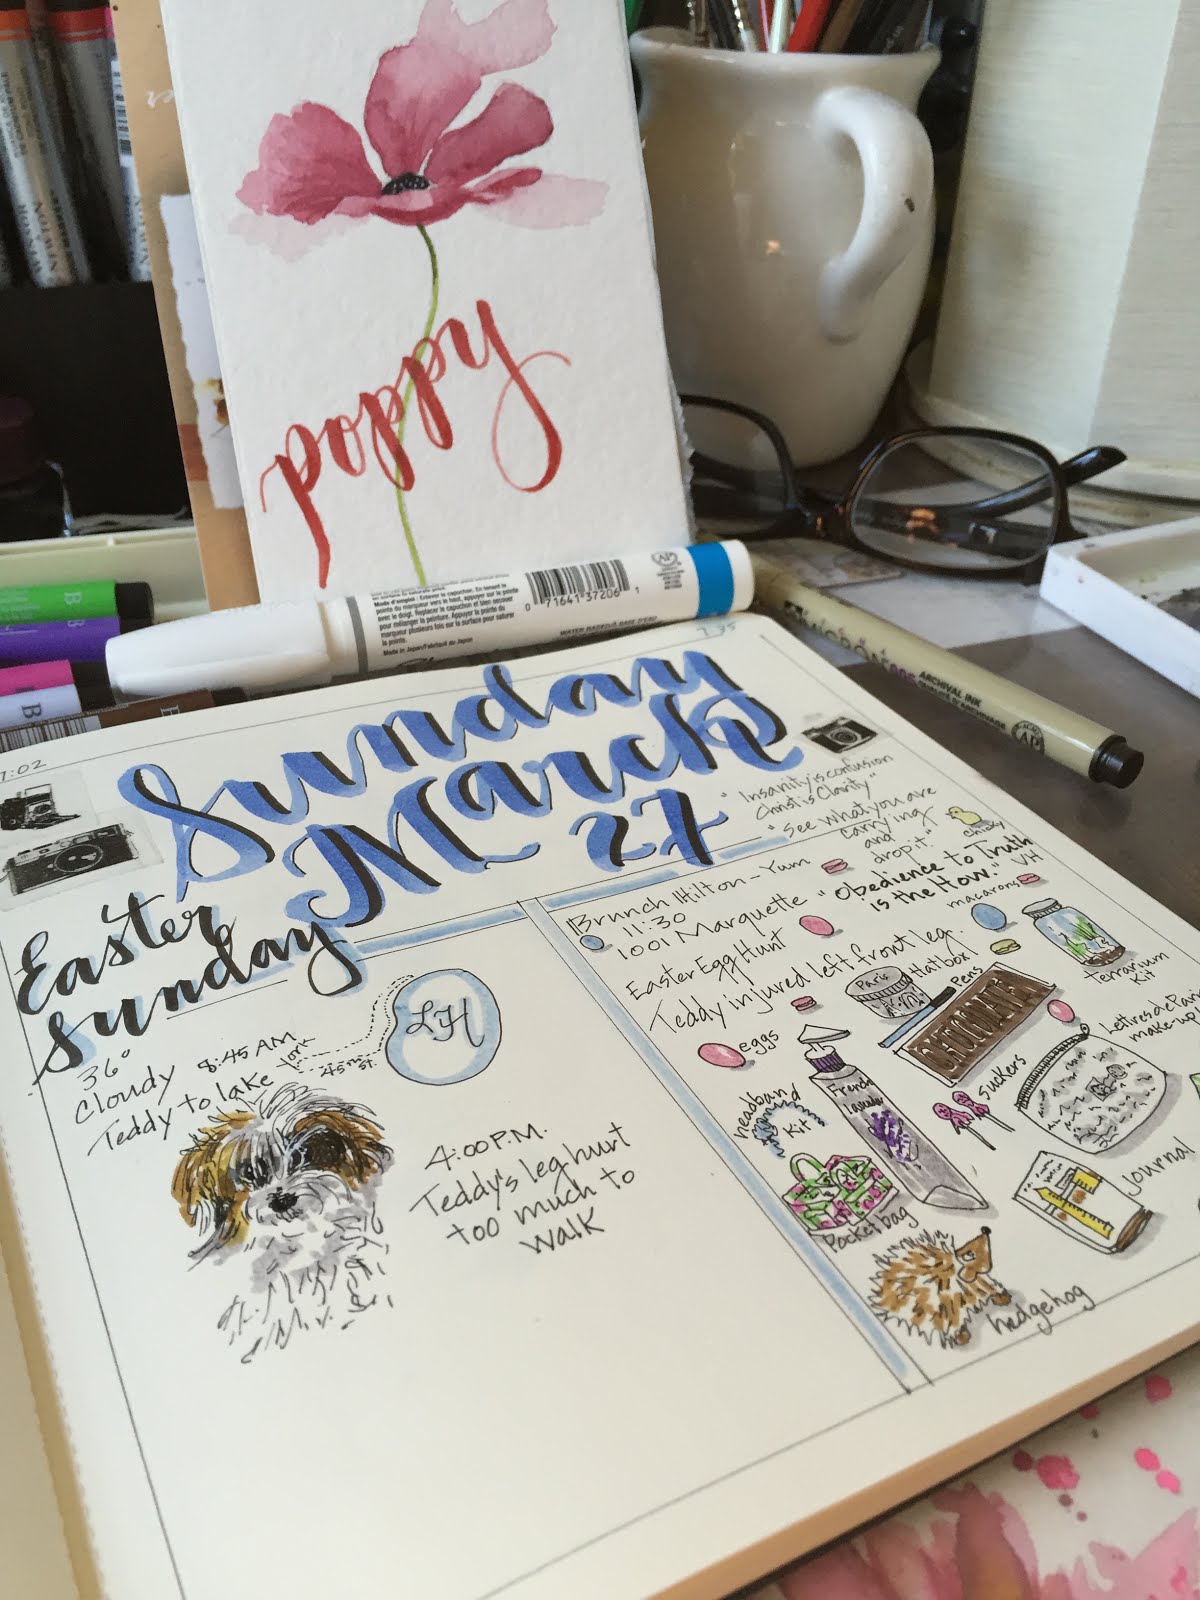 poppy
0 71641 37206 1
Made in Japan/Fabriqué au Japon
ARCHIVAL INK
B
B
B
7:02
7:35
Sunday
March
27
Easter
Sunday
36°
Cloudy 8:45 AM
Teddy to lake
York
45th St.
LH
4:00 P.M.
Teddy's leg hurt
too much to
walk
"Insanity is confusion
Christ is Clarity"
"See what you are
carrying
and
drop it."
chicky
"Obedience to Truth
is the How."
VH
Brunch Hilton - Yum
11:30
1001 Marquette
Easter Egg Hunt
Teddy injured left front leg.
macarons
terrarium
Kit
Paris
Hatbox!
Pens
CHOCOLATE
eggs
headband
Kit
French
Lavender
suckers
Lettres de Paris
make-up
Journal
Pocket bag
hedgehog